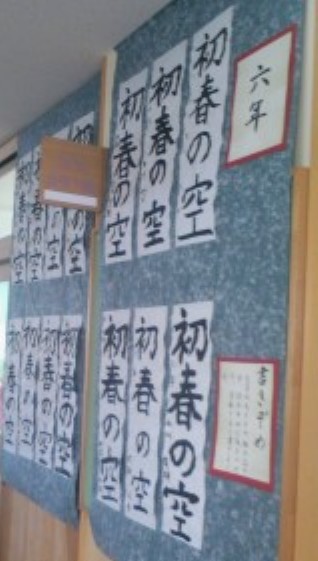 六年
初春の空
初春の空
初春の空
書きぞめ
初春の空
初春の空
初春の空
の空
の空
初春の空
初春の空
初春の空
初春の空
初春の空
初春の空